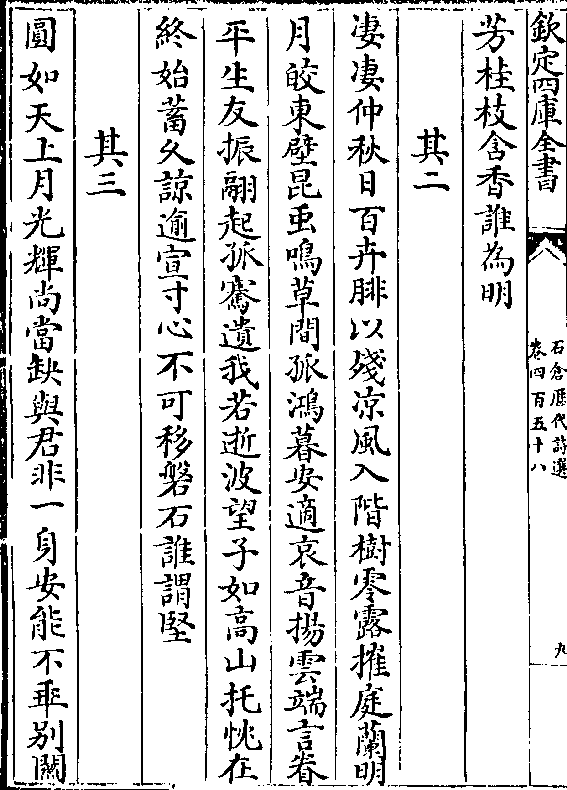 欽定四庫全書
石倉歷代詩選
卷四百五十八
九
芳桂枝含香誰為明
其二
凄凄仲秋日百卉腓以殘凉風入階樹零露摧庭蘭明
月皎東壁昆虫鳴草間孤鴻暮安適哀音揚雲端言眷
平生友振翮起孤騫遺我若逝波望子如高山托怳在
終始蓄久諒逾宣寸心不可移磐石誰謂堅
其三
圓如天上月光輝尚當缺與君非一身安能不乖别關